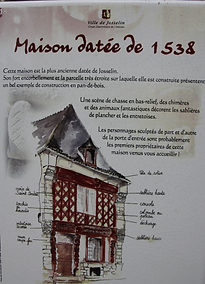 Ville de Josselin
Maison datée de 1538
Cette maison est la plus ancienne datée de Josselin.
Son fort encorbellement et la parcelle très étroite sur laquelle elle est construite présentent
un bel exemple de construction en pan-de-bois.
Une scène de chasse en bas-relief, des chimères
et des animaux fantastiques décorent les sablières
de plancher et les entretoises.
Les personnages sculptés de part et d'autre
de la porte d'entrée sont probablement
les premiers propriétaires de cette
maison venus vous accueillir !
sablière haute
console
décharge
sablière basse